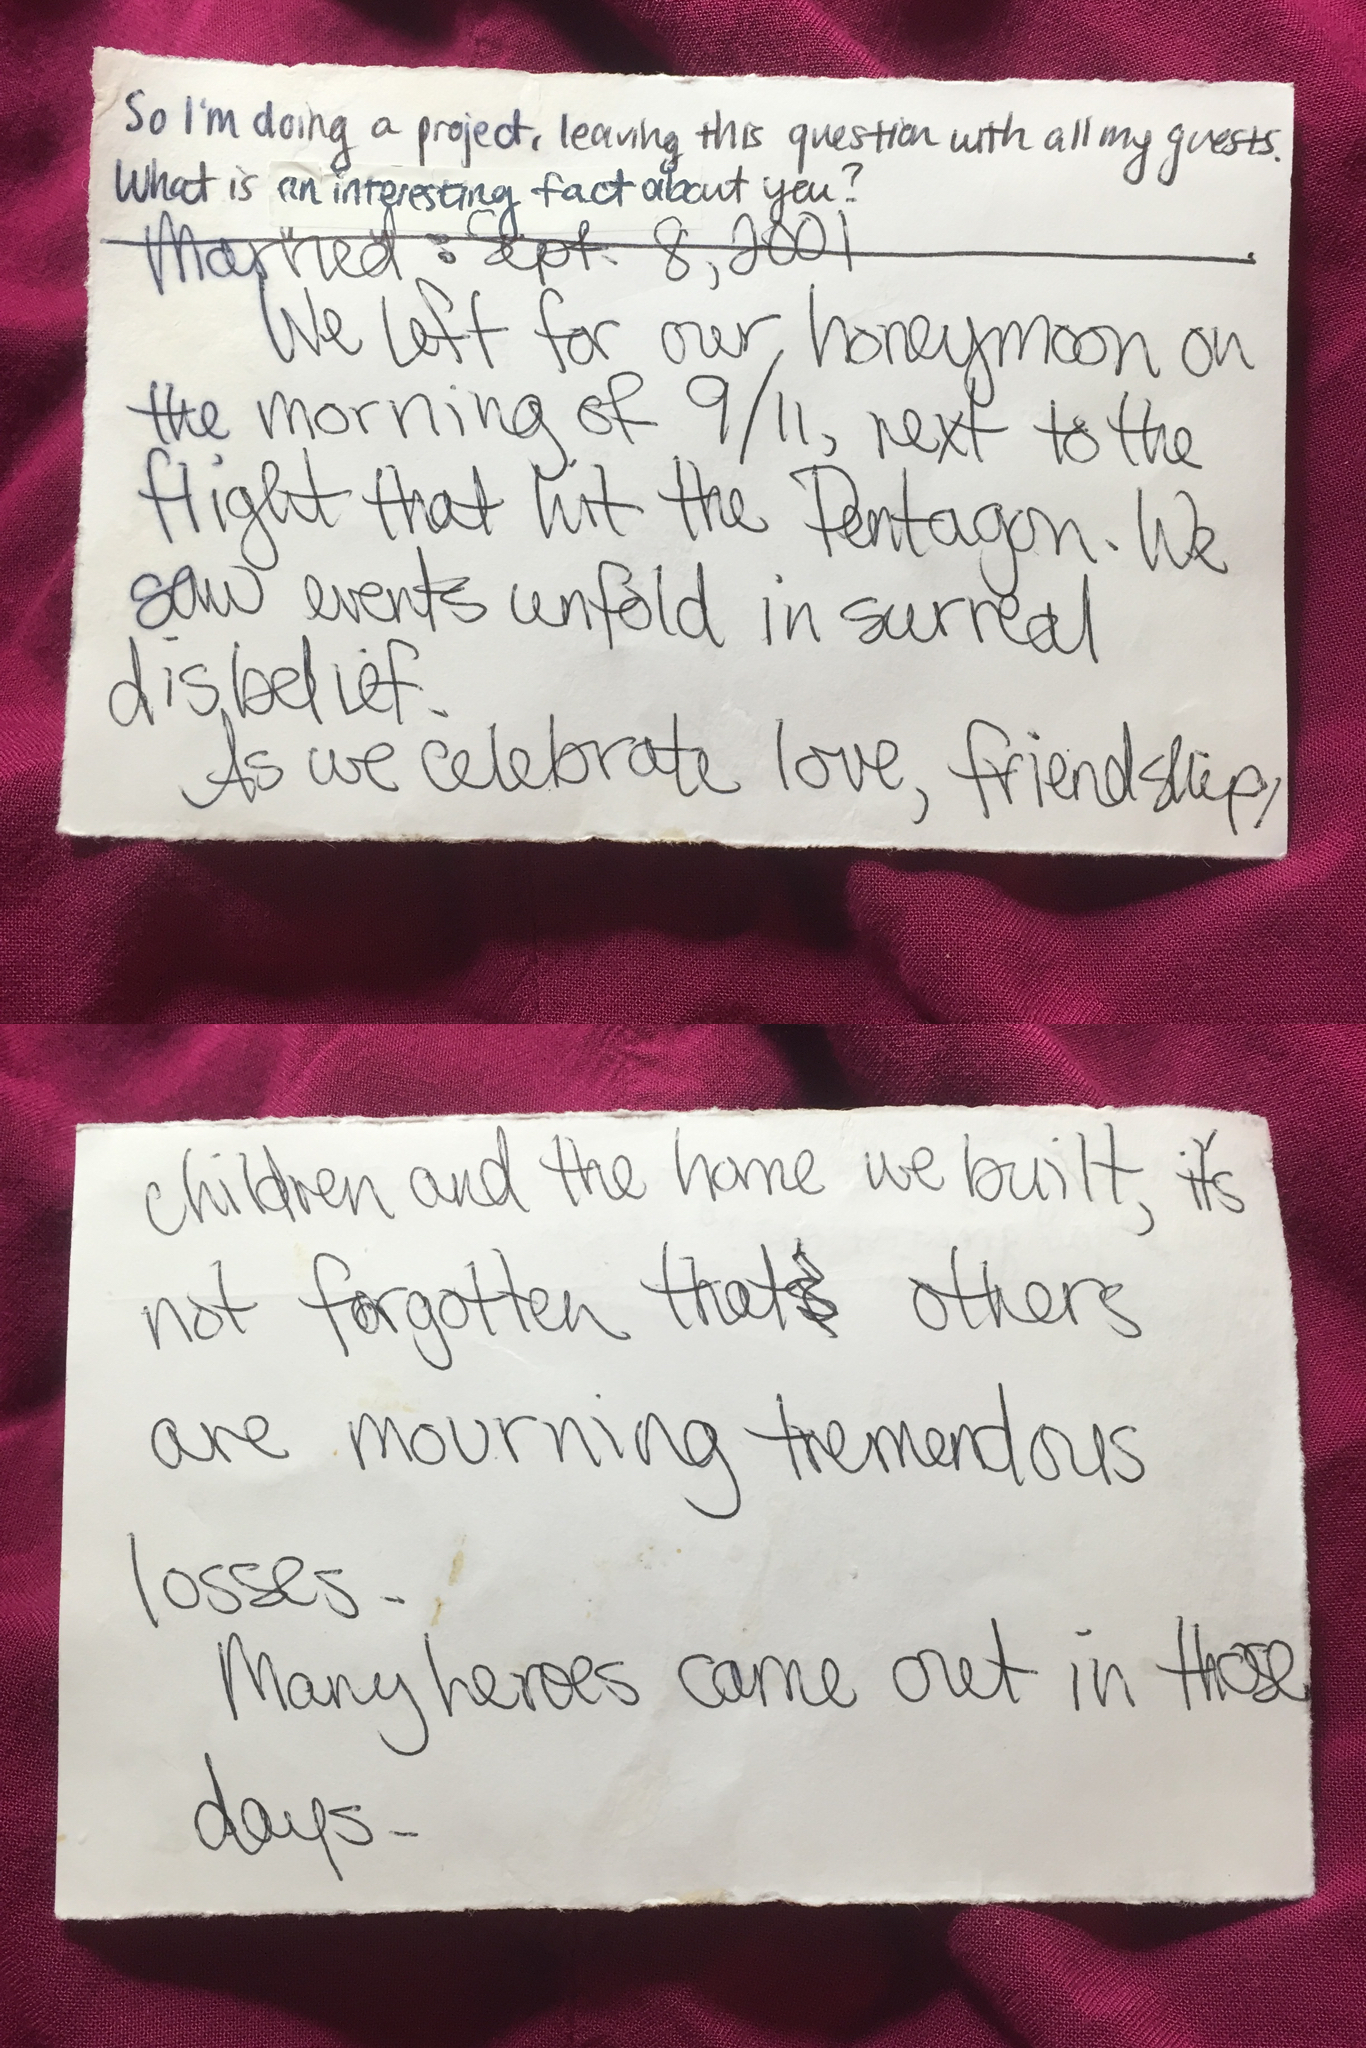 So I'm doing a project, leaving this question with all my guests.
What is an interesting fact about you?
Married: Sept. 8, 2001
We left for our honeymoon on
the morning of 9/11, next to the
flight that hit the Pentagon. We
saw events unfold in surreal
disbelief.
As we celebrate love, friendship,
children and the home we built, it's
not forgotten that others
are mourning tremendous
losses.
Many heroes came out in those
days.